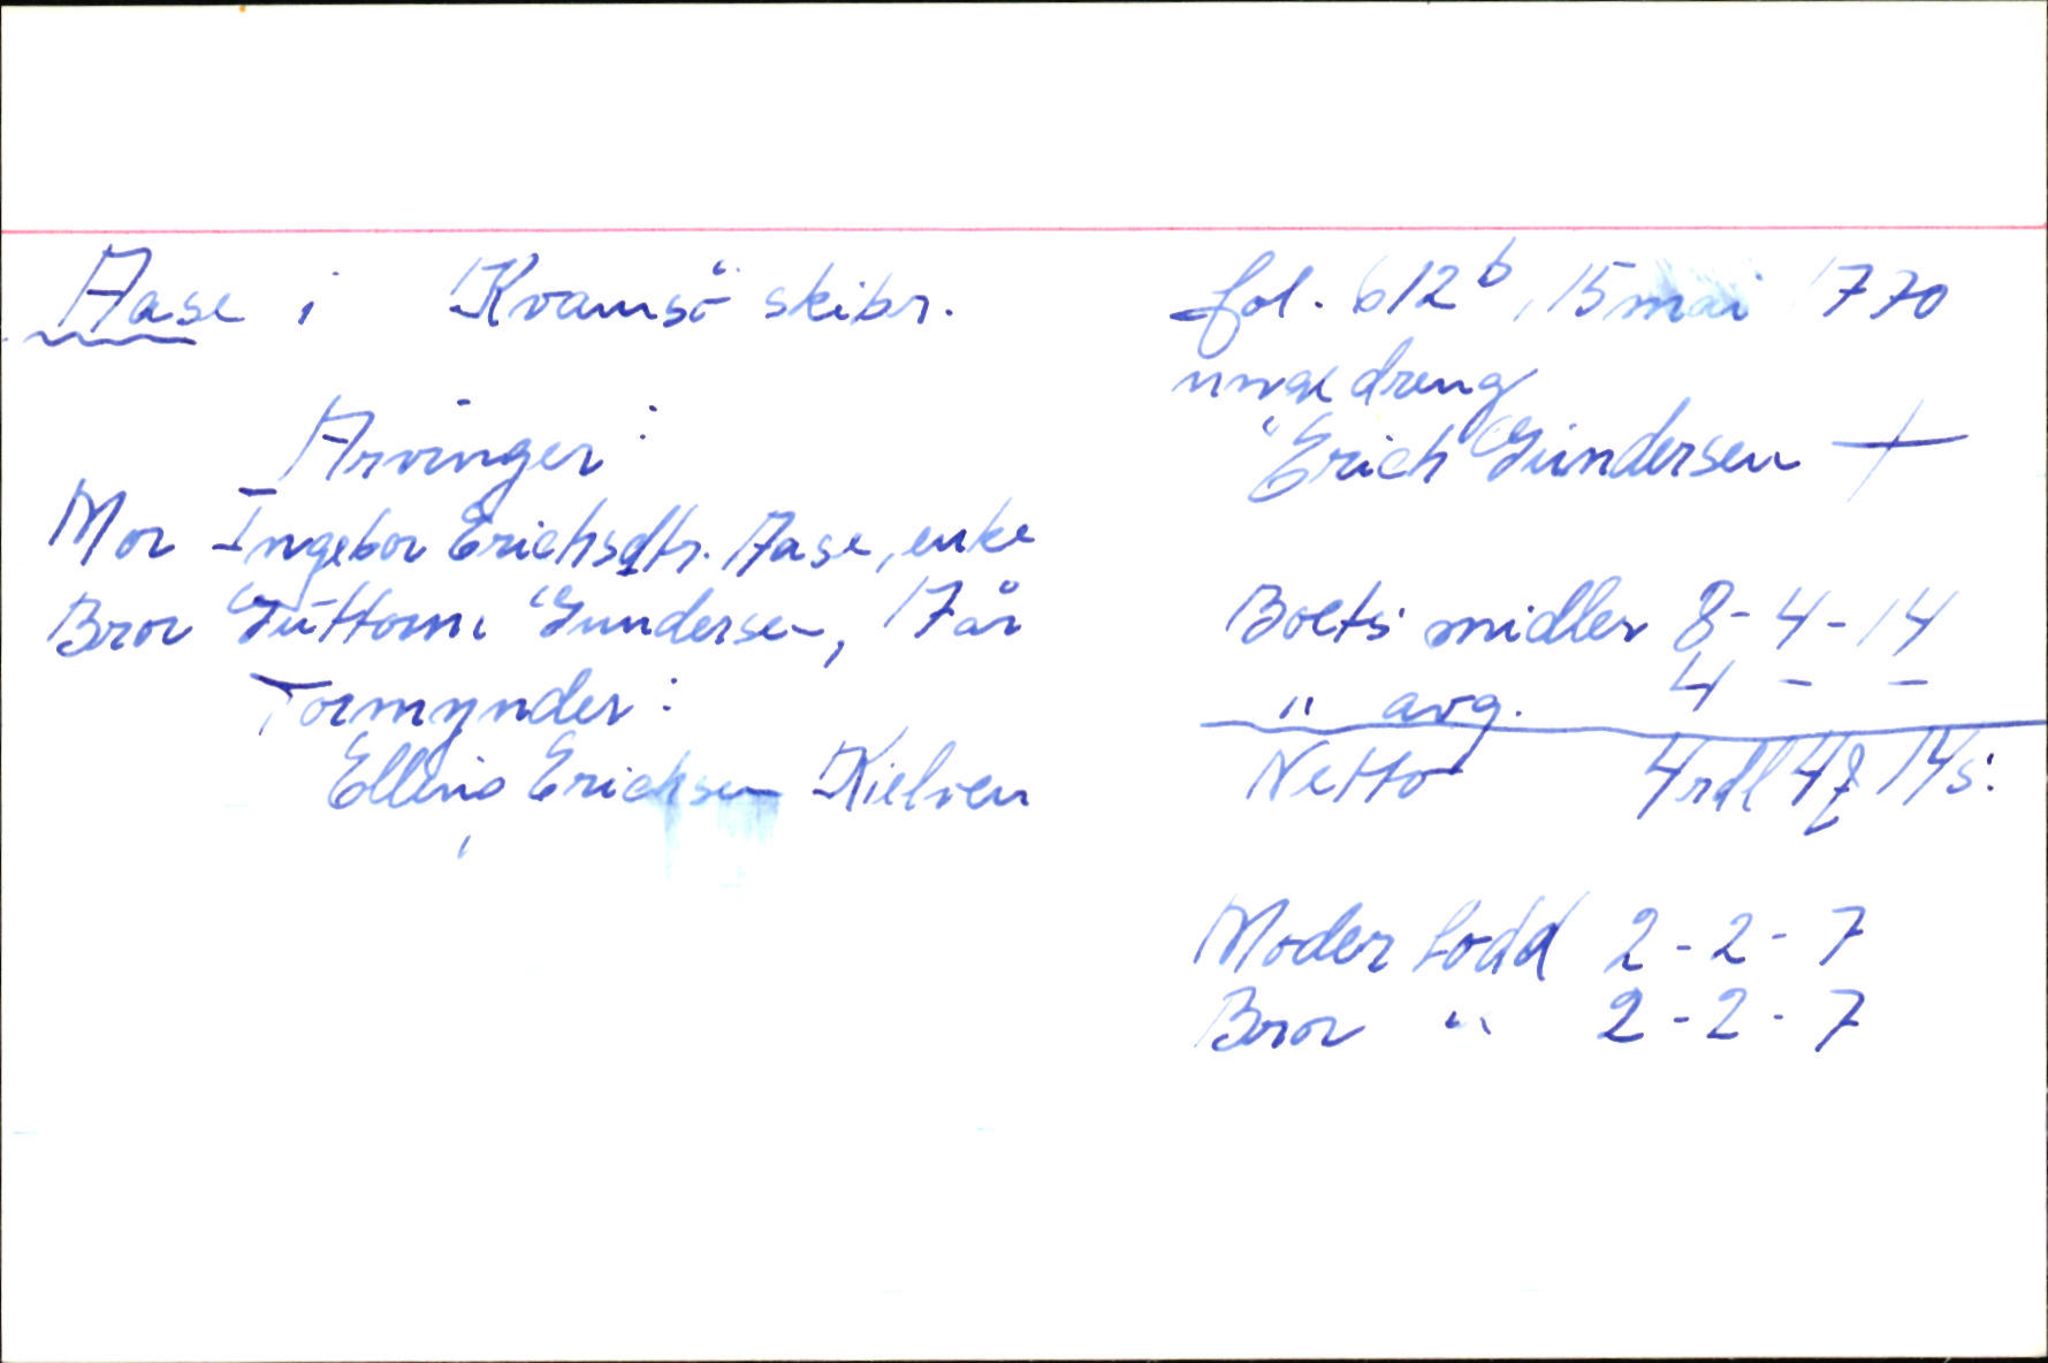 Aase i Kvamsö skibr.
fol. 612b, 15 mai 1770
unge dreng
Erich Gundersen +
Arvinger:
Mor Ingebor Erichsdtr. Aase, enke
Bror Guttorm Gundersen, 17 år
Formynder:
Elling Erichsen Kielven
Boets midler 8 - 4 - 14
" avg. 4 - -
Netto 4 rdl 4 14 s:
Moder lodd 2 - 2 - 7
Bror " 2 - 2 - 7